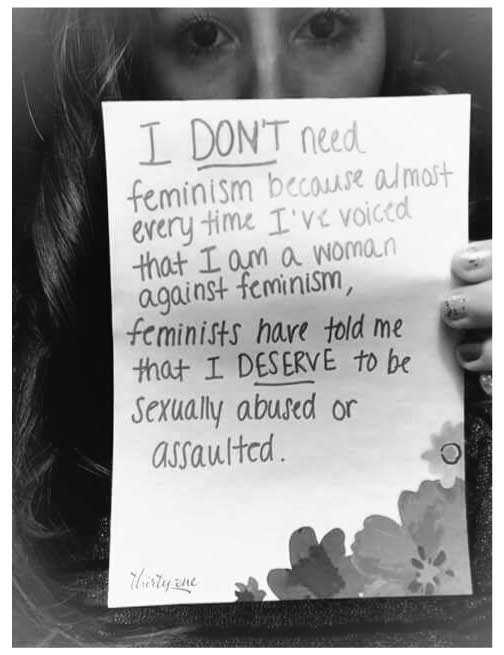 I DON'T need
feminism because almost
every time I've voiced
that I am a woman
against feminism,
feminists have told me
that I DESERVE to be
sexually abused or
assaulted.
Thirty one